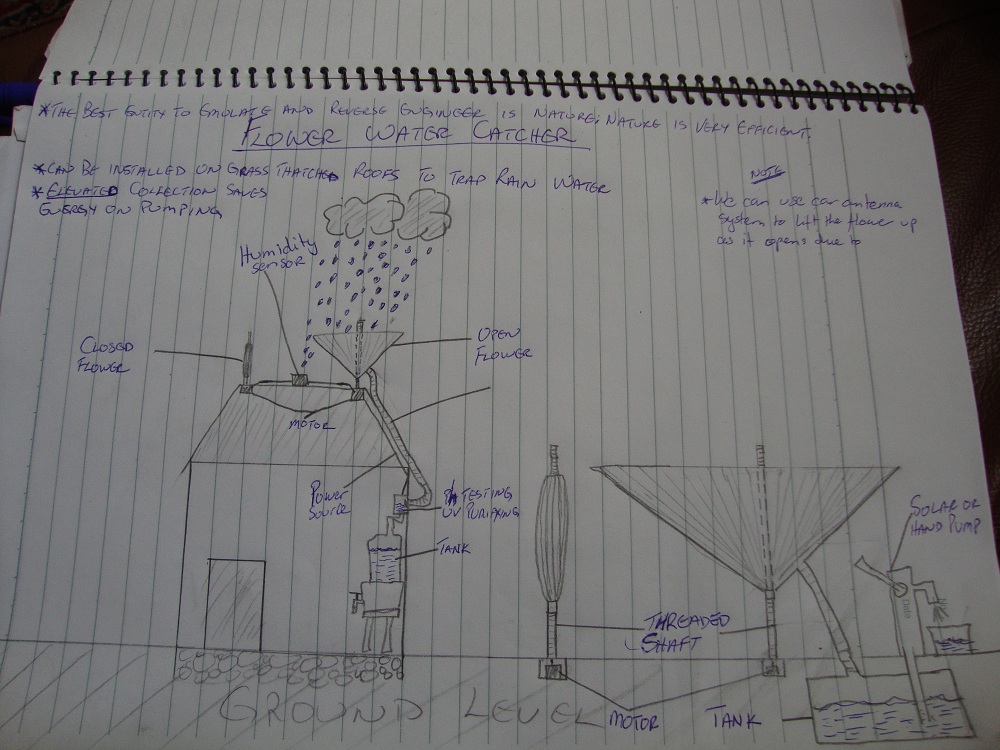 *THE BEST ENTITY TO EMULATE AND REVERSE ENGINEER IS NATURE; NATURE IS VERY EFFICIENT.
FLOWER WATER CATCHER
*CAN BE INSTALLED ON GRASS THATCHED ROOFS TO TRAP RAIN WATER
*ELEVATED COLLECTION SAVES
ENERGY ON PUMPING
NOTE
*We can use car antenna
system to lift the flower up
as it opens due to
Humidity
sensor
CLOSED
FLOWER
OPEN
FLOWER
MOTOR
Power
Source
PH TESTING
UV PURIFYING
TANK
SOLAR OR
HAND PUMP
THREADED
SHAFT
MOTOR
TANK
GROUND LEVEL